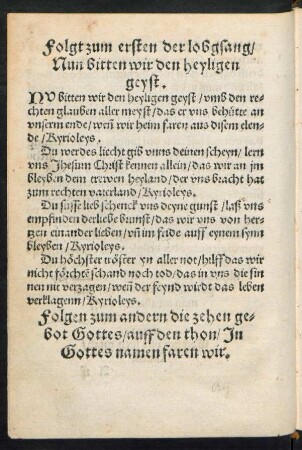 Folgt zum ersten der lobgsang/
Nun bitten wir den heyligen
geyst.
NV bitten wir den heyligen geyst/ vmb den re-
chten glauben aller meyst/das er vns behütte an
vnserm ende/weñ wir heim faren aus disem elen-
de/Kyrioleys.
Du werdes liecht gib vnns deinen scheyn/ lern
vns Jhesum Christ kennen allein/das wir an jm
bleyben dem trewen heyland/der vns bracht hat
zum rechten vaterland/Kyrioleys.
Du süsse lieb schenck vns deyne gunst/ lass vns
empfinden der liebe brunst/das wir vns von her-
tzen einander lieben/vnd im fride auff eynem synn
bleyben/Kyrioleys.
Du höchster tröster yn aller not/hilff das wir
nicht förchtē schand noch tod/das in vns die sin
nen nit verzagen/weñ der feynd wirdt das leben
verklagenn/Kyrioleys.
Folgen zum andern die zehen ge-
bot Gottes/auff den thon/Jn
Gottes namen faren wir.